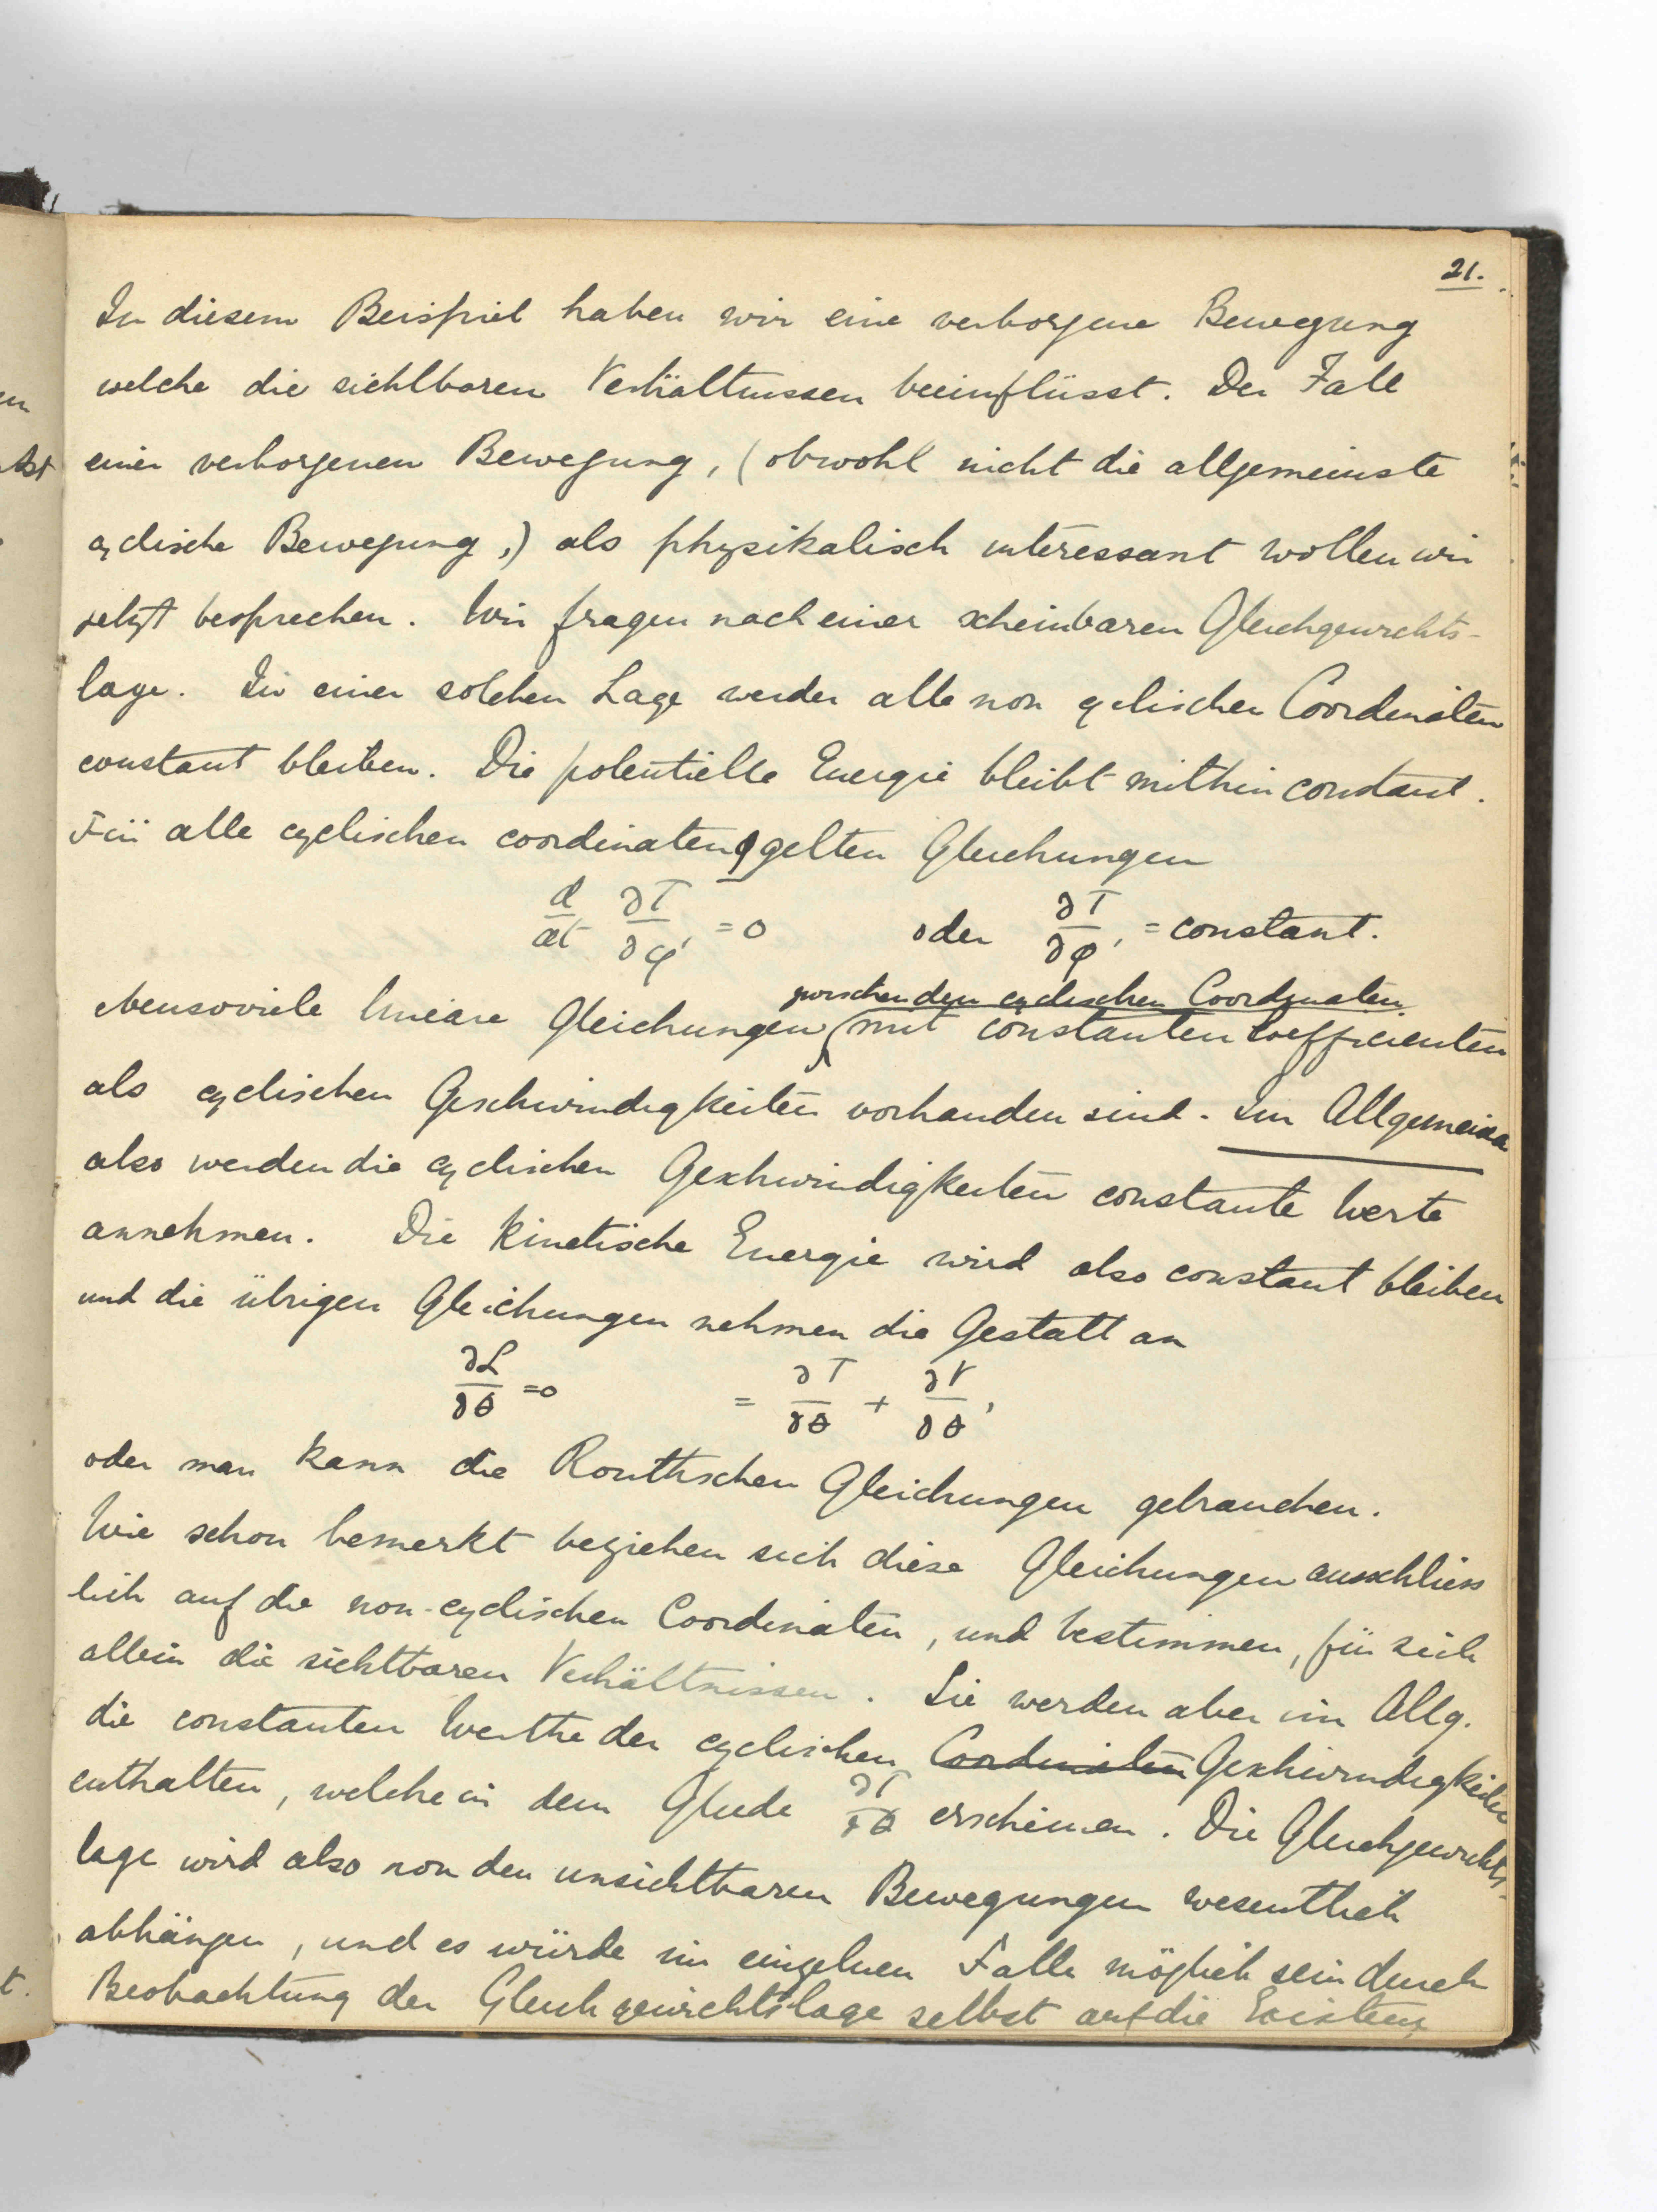 21.
In diesem Beispiel haben wir eine verborgene Bewegung
welche die sichtbaren Verhältnissen beeinflüsst. Der Fall
einer verborgenen Bewegung, (obwohl nicht die allgemeinste
cyclische Bewegung,) als physikalisch interessant wollen wir
jetzt besprechen. Wir fragen nach einer scheinbaren Gleichgewichts-
lage. In einer solchen Lage werden alle non cyclischen Coordinaten
constant bleiben. Die potentielle Energie bleibt mithin constant.
Für alle cyclischen coordinaten φ gelten Gleichungen
d/dt ∂T/∂φ' = 0 oder ∂T/∂φ' = constant.
zwischen den cyclischen Coordinaten
ebensoviele lineare Gleichungen mit constanten Coefficienten
als cyclischen Geschwindigkeiten vorhanden sind. Im Allgemeinen
also werden die cyclischen Geschwindigkeiten constante Werte
annehmen. Die kinetische Energie wird also constant bleiben
und die übrigen Gleichungen nehmen die Gestalt an
∂L/∂θ = 0 = ∂T/∂θ + ∂V/∂θ,
oder man kann die Routhschen Gleichungen gebrauchen.
Wie schon bemerkt beziehen sich diese Gleichungen ausschliess
lich auf die non-cyclischen Coordinaten, und bestimmen, für sich
allein die sichtbaren Verhältnissen. Sie werden aber im Allg.
die constanten Werthe der cyclischen Coordinaten Geschwindigkeiten
enthalten, welche in dem Gliede ∂T/∂θ erscheinen. Die Gleichgewichts-
lage wird also von den unsichtbaren Bewegungen wesentlich
abhängen, und es würde im einzelnen Falle möglich sein durch
Beobachtung der Gleichgewichtslage selbst auf die Existenz